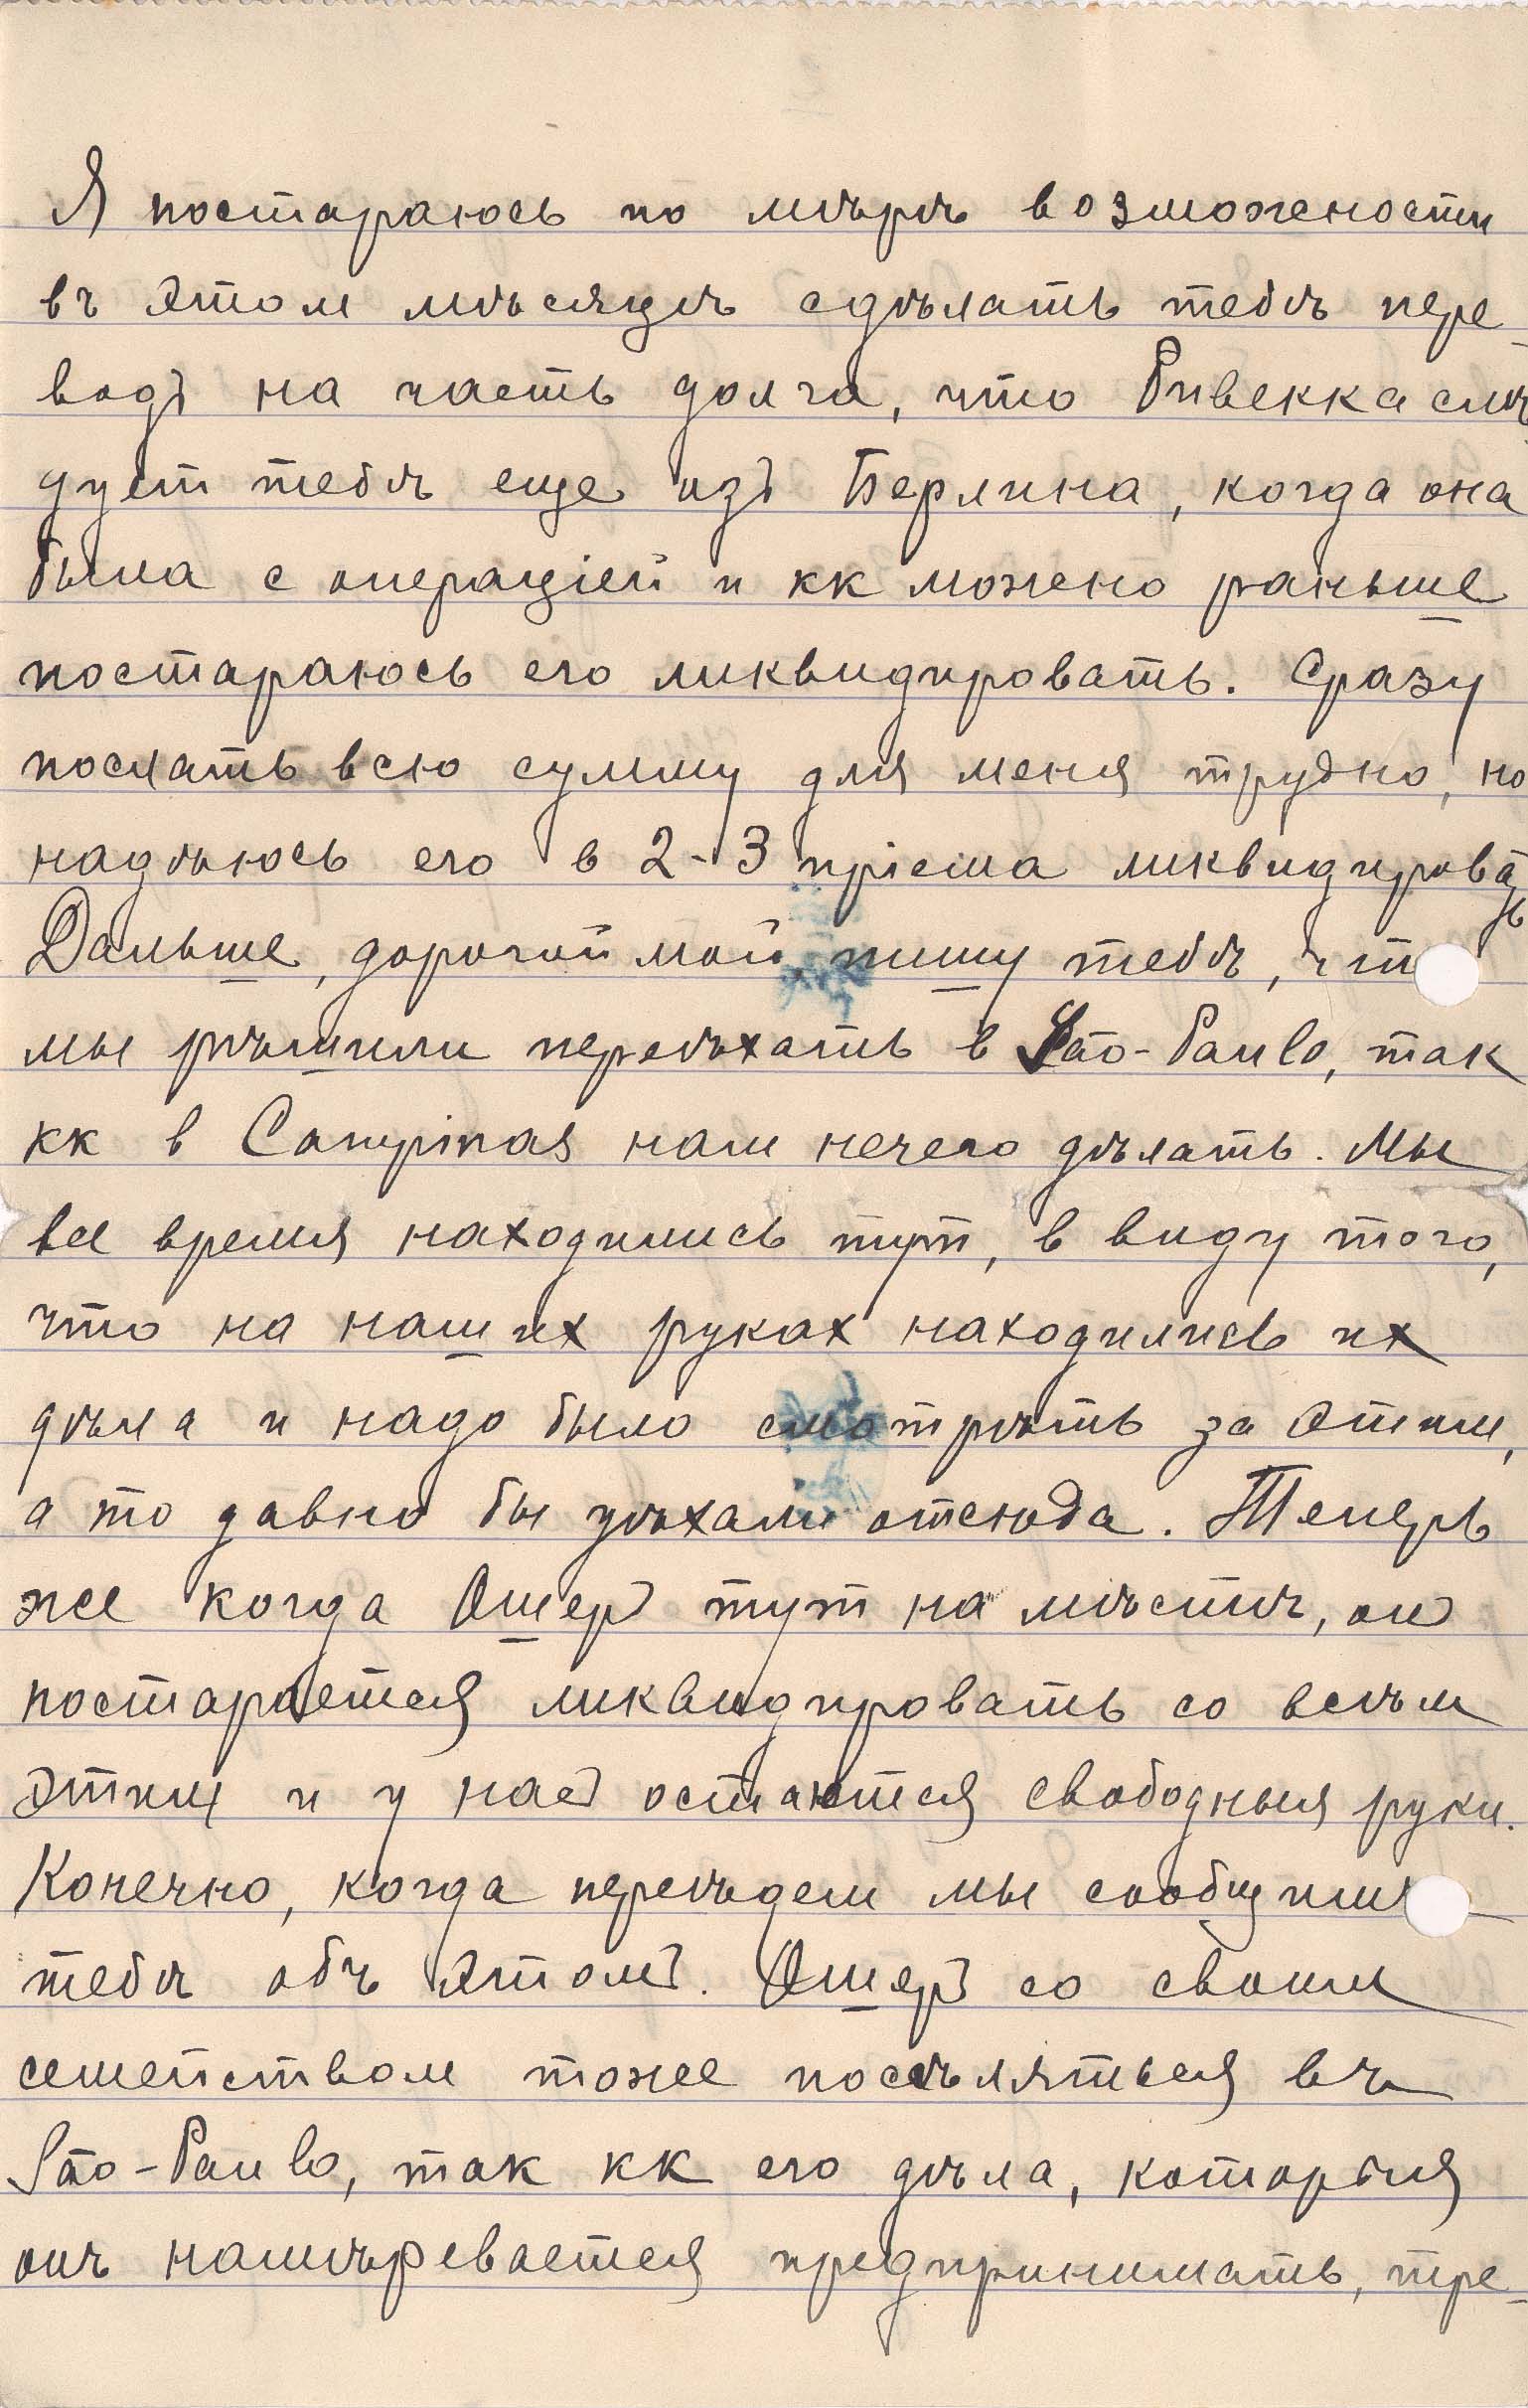 Я постараюсь по мѣрѣ возможности
въ этом мѣсяцѣ сдѣлать тебѣ пере-
водъ на часть долга, что Ривекка слѣ
дует тебѣ еще изъ Берлина, когда она
была с операціей и кк можно раньше
постараюсь его ликвидировать. Сразу
послать всю сумму для меня трудно, но
надѣюсь его в 2-3 пріема ликвидировать
Дальше, дорогой мой, пишу тебѣ, чт
мы рѣшили переѣхать в São-Paulo, так
кк в Campinas нам нечего дѣлать. Мы
все время находились тут, в виду того,
что на наших руках находились их
дѣла и надо было смотрѣть за этим,
а то давно бы уѣхали отсюда. Теперь
же когда Ошеръ тут на мѣстѣ, онъ
постарается ликвидировать со всѣм
этим и у насъ остаются свободныя руки.
Конечно, когда переѣдем мы сообщим
тебѣ объ этомъ. Ошеръ со своим
семейством тоже поселяться въ
São-Paulo, так кк его дѣла, которыя
онъ намѣревается предпринимать, тре-